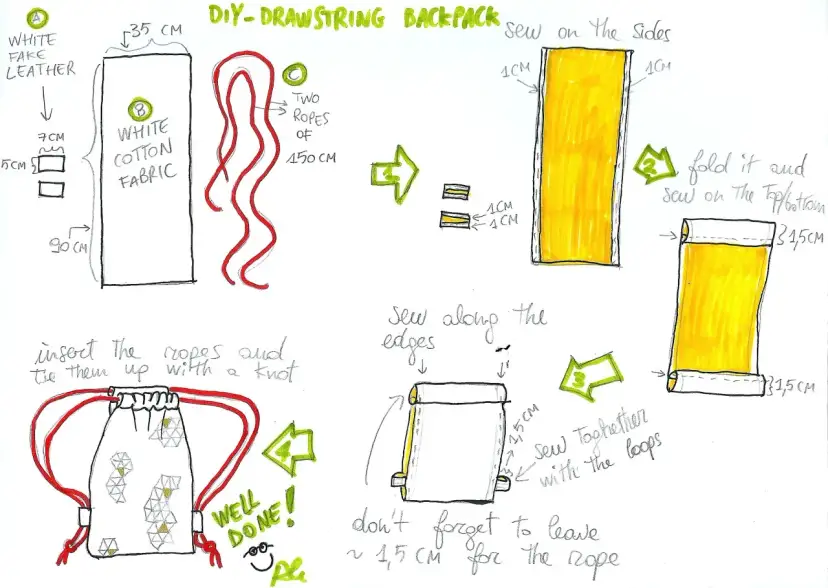 DIY-DRAWSTRING BACKPACK
A
WHITE
FAKE
LEATHER
7CM
5CM
35 CM
B
WHITE
COTTON
FABRIC
90CM
C
TWO
ROPES
OF
150CM
1
1CM
1CM
sew on the sides
1CM
1CM
2
fold it and
sew on the Top/bottom
1,5CM
1,5CM
3
sew along the
edges
1,5CM
sew Toghether
with the loops
don't forget to leave
~ 1,5 CM for the rope
4
insert the ropes and
tie them up with a knot
WELL
DONE!